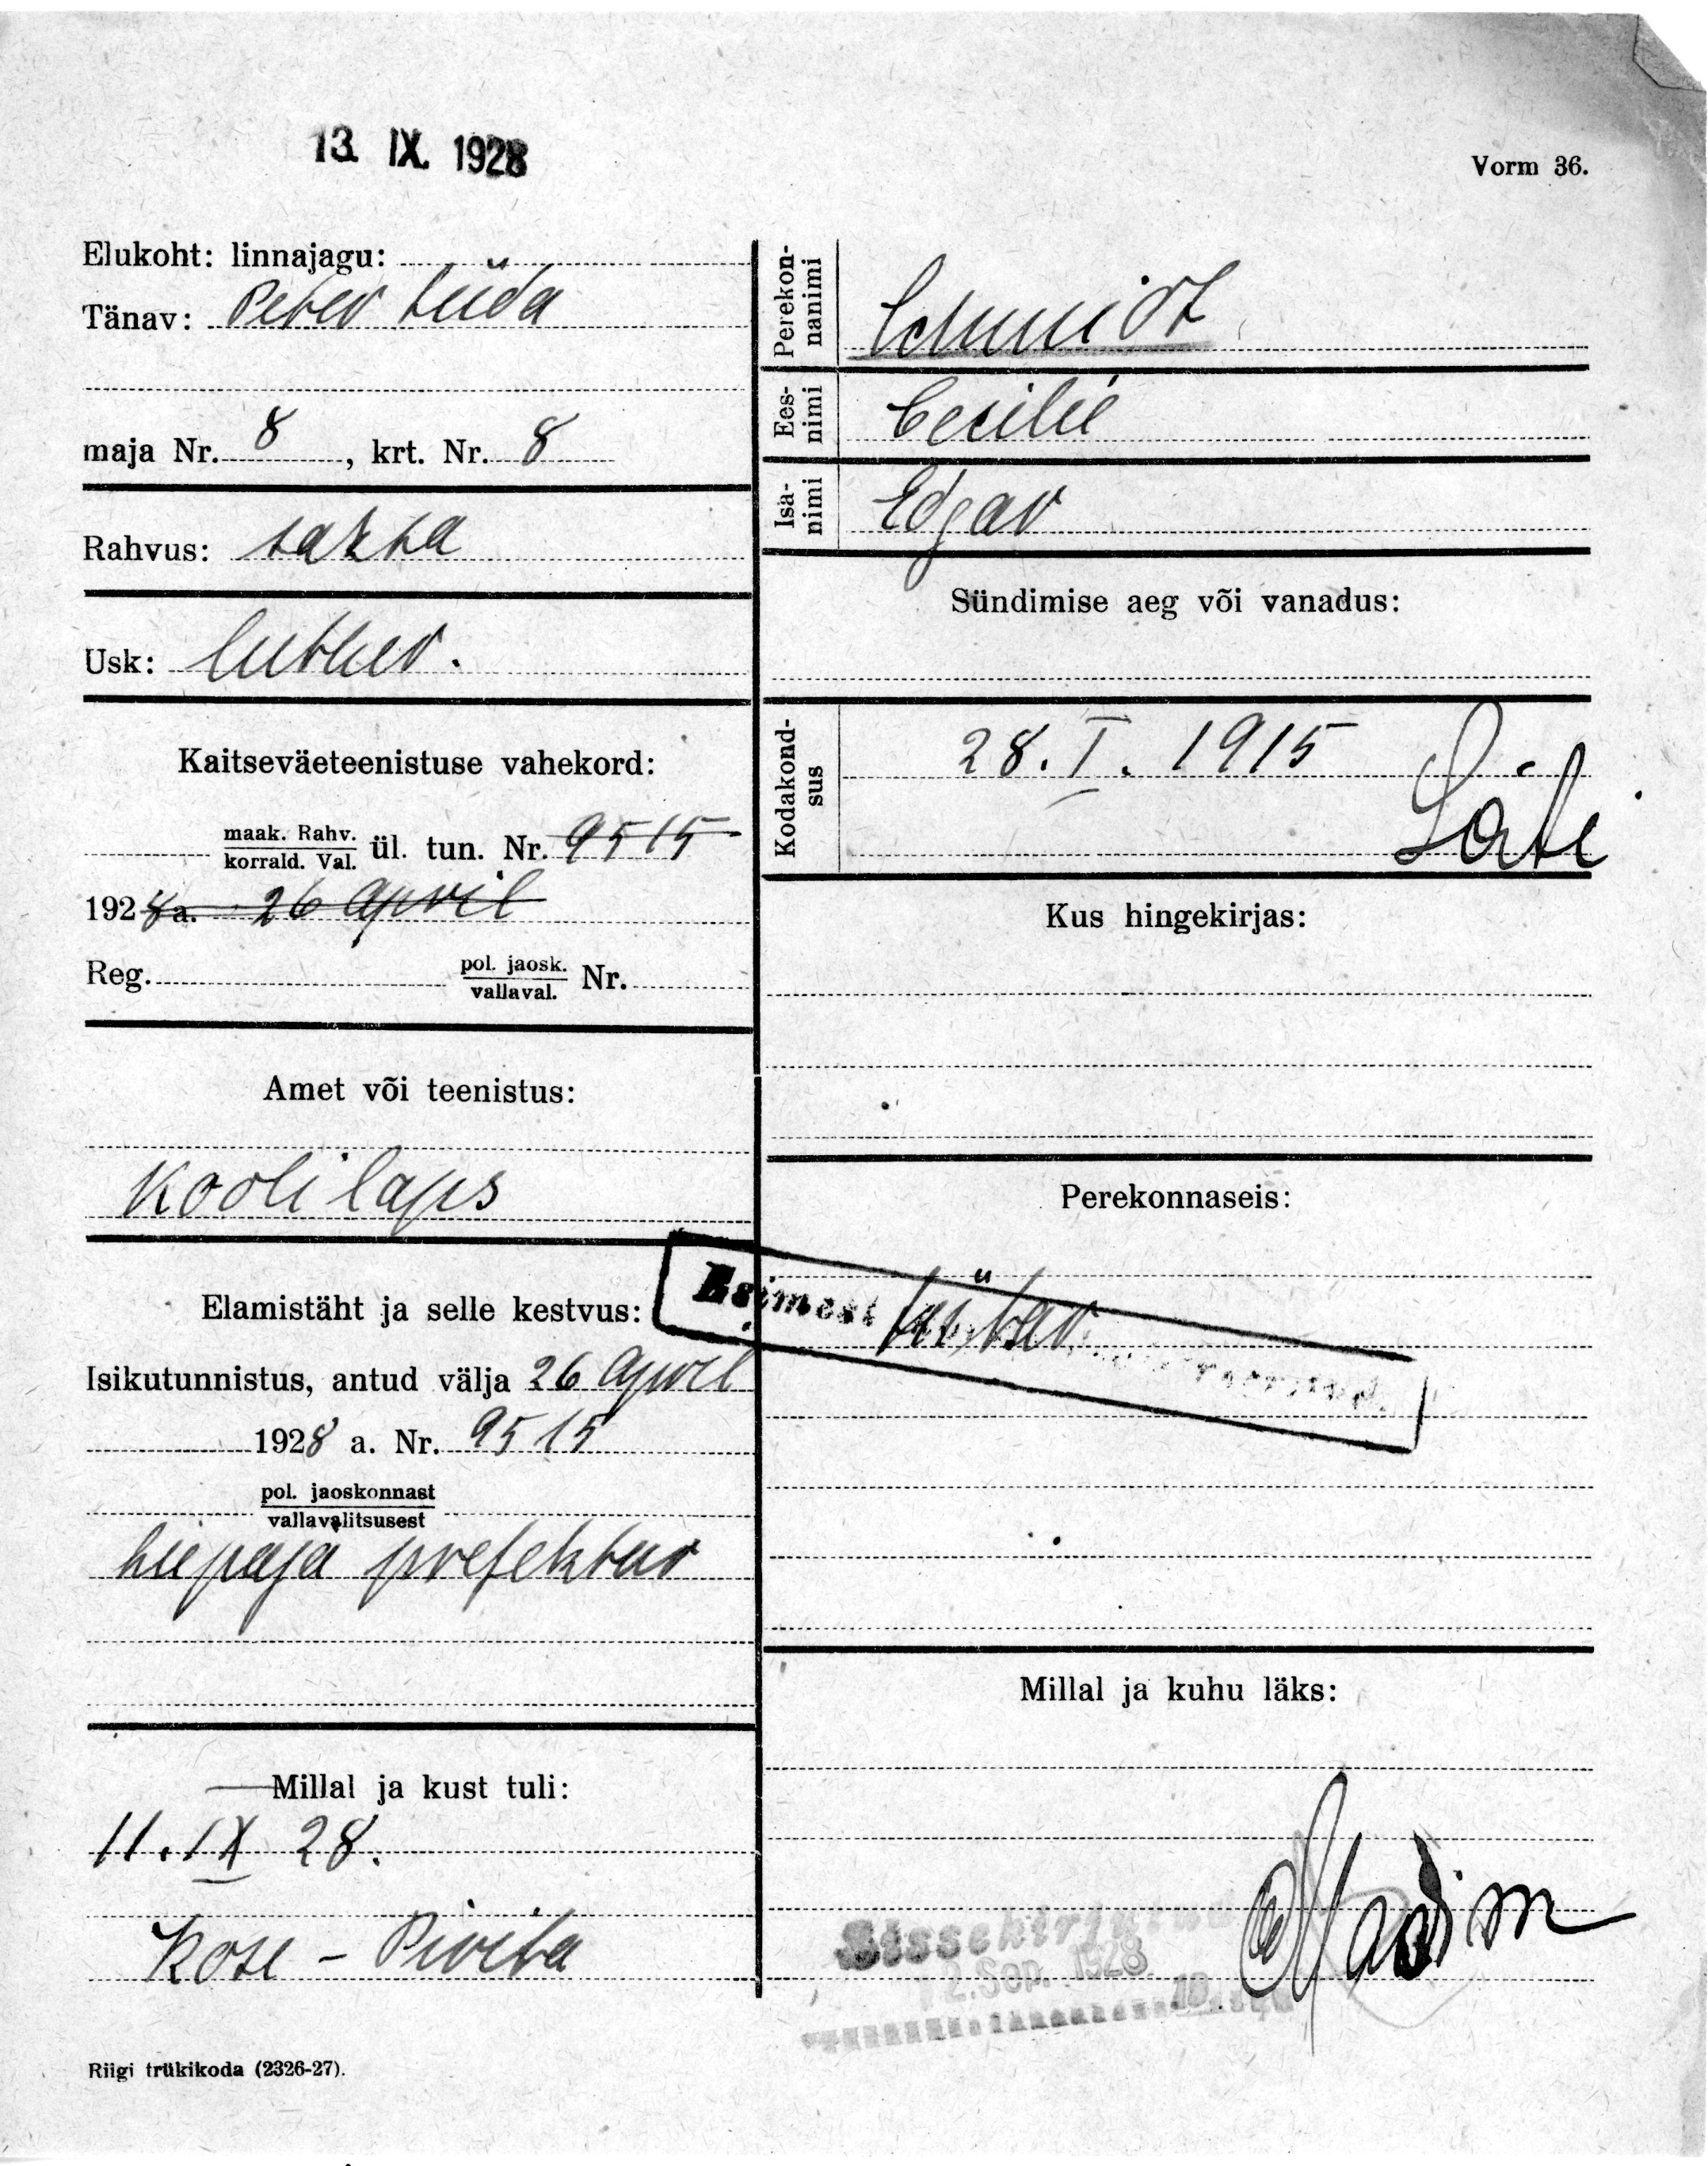 13. IX. 1928
Vorm 36.
Elukoht: linnajagu:
Tänav: Peter Süda
maja Nr. 8, krt. Nr. 8
Rahvus: saksa
Usk: luther.
Kaitseväeteenistuse vahekord:
maak. Rahv.
korrald. Val. ül. tun. Nr. 9515
1928 a. 26 April
Reg. pol. jaosk.
vallaval. Nr.
Amet või teenistus:
Koolilaps
Elamistäht ja selle kestvus:
Isikutunnistus, antud välja 26 April
1928 a. Nr. 9515
pol. jaoskonnast
vallavalitsusest
Liepaja prefektur
Millal ja kust tuli:
11. IX 28.
Kose - Pirita
Riigi trükikoda (2326-27).
Perekon-
nanimi Schmidt
Ees-
nimi Cecilie
Isa-
nimi Edgar
Sündimise aeg või vanadus:
28. I. 1915
Kodakond-
sus Läti
Kus hingekirjas:
Perekonnaseis:
tütar
Esimest
Millal ja kuhu läks:
Sissekirjutud
12. Sep. 1928